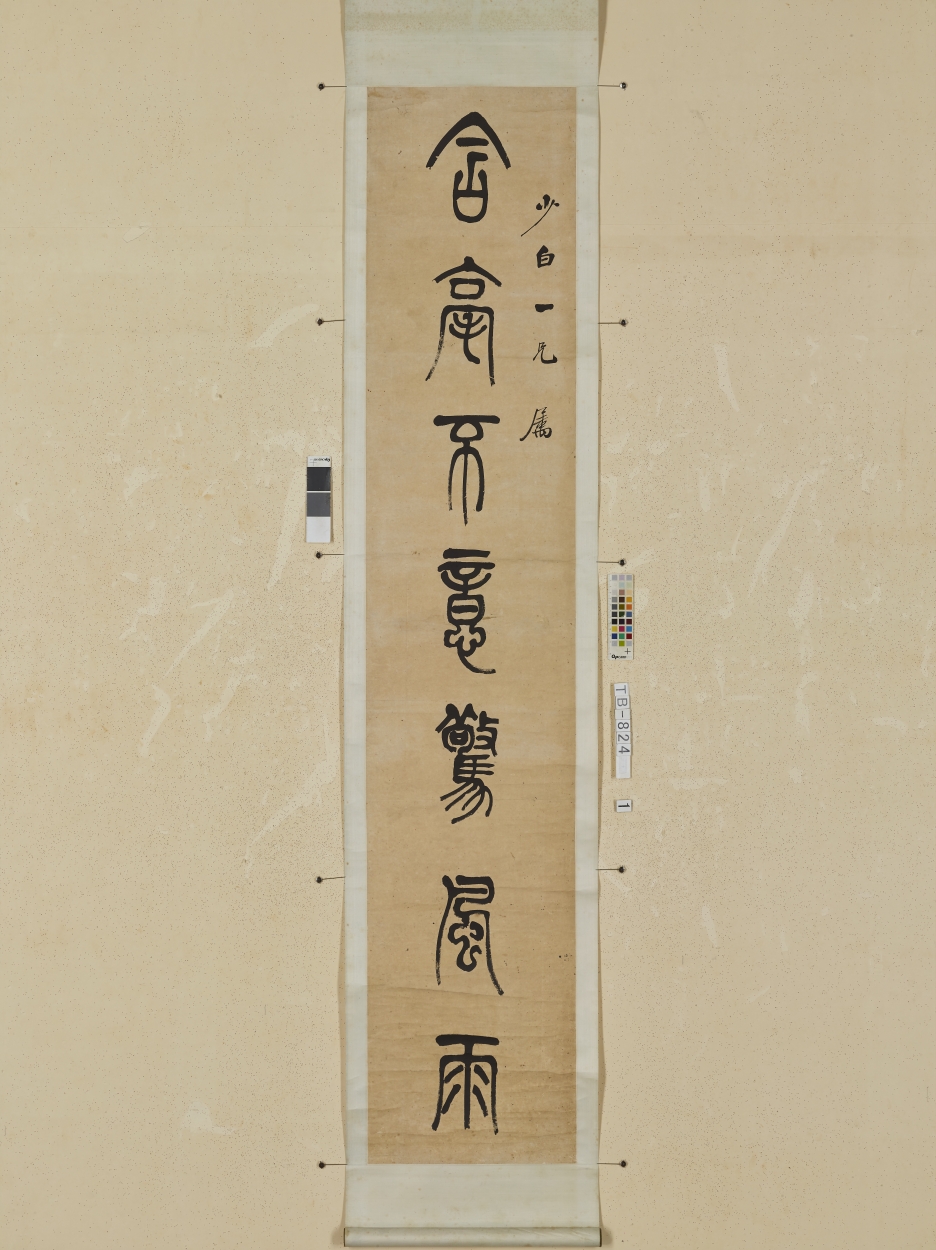 少白一兄 属
含毫不意驚風雨
TB-824
1